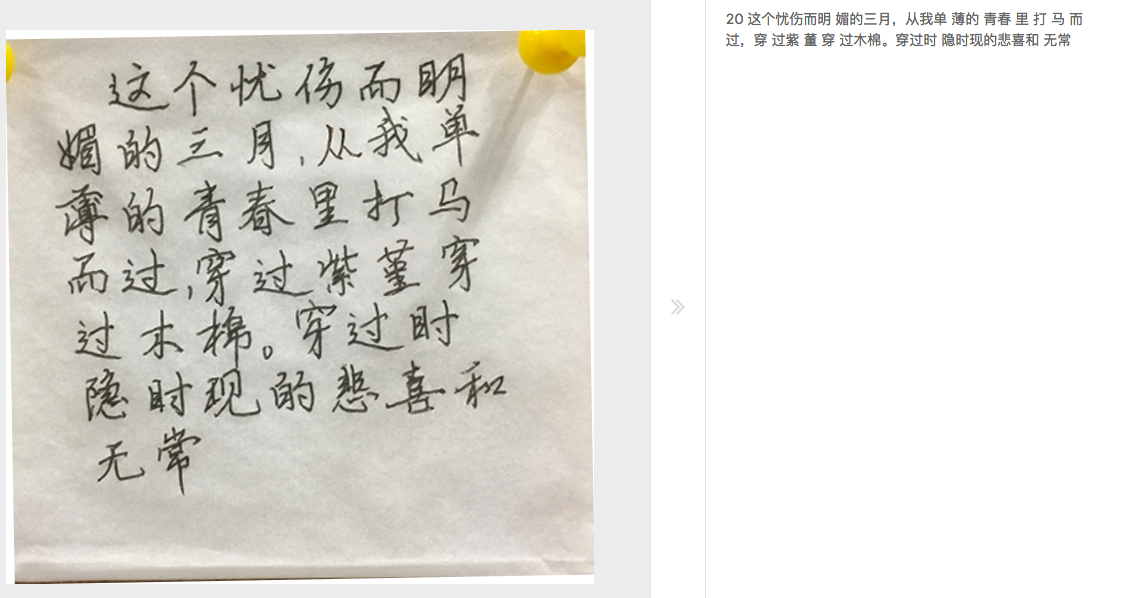 这个忧伤而明
媚的三月,从我单
薄的青春里打马
而过,穿过紫堇穿
过木棉。穿过时
隐时现的悲喜和
无常
20 这个忧伤而明 媚的三月，从我单 薄的 青春 里 打 马 而
过，穿 过紫 董 穿 过木棉。穿过时 隐时现的悲喜和 无常